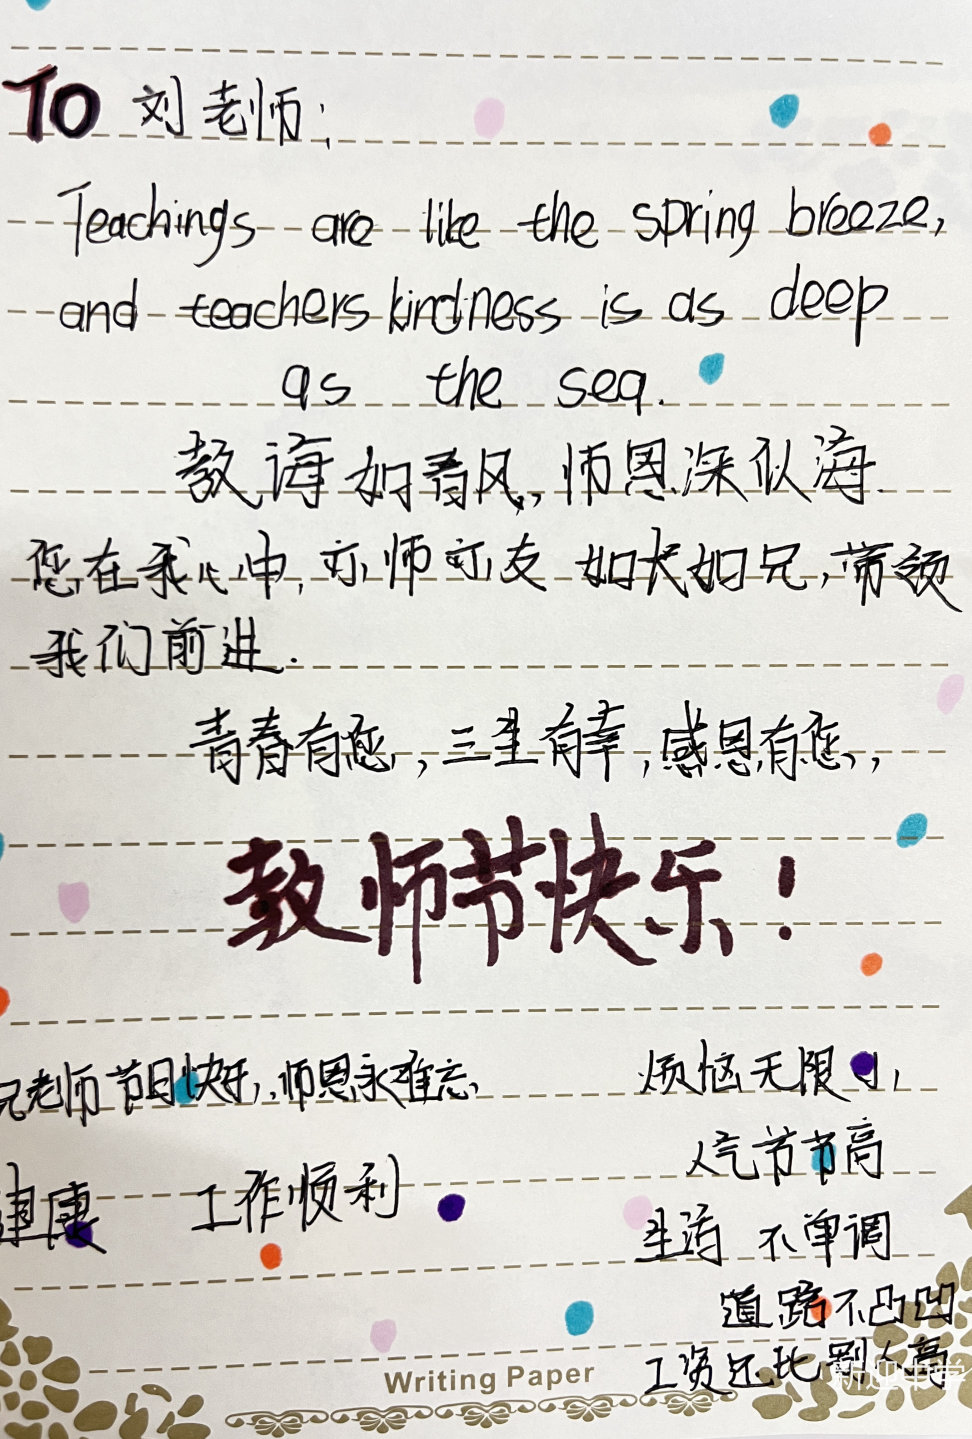 TO 刘老师:
Teachings are like the spring breeze,
and teachers kindness is as deep
as the sea.
教诲如春风,师恩深似海.
您在我心中,亦师亦友 如长如兄,带领
我们前进.
青春有您,三生有幸,感恩有您,
教师节快乐!
祝老师节日快乐,师恩永难忘,
健康 工作顺利
烦恼无限小,
人气节节高
生活 不单调
道路不凸凹
工资还比别人高
Writing Paper
新迎中学